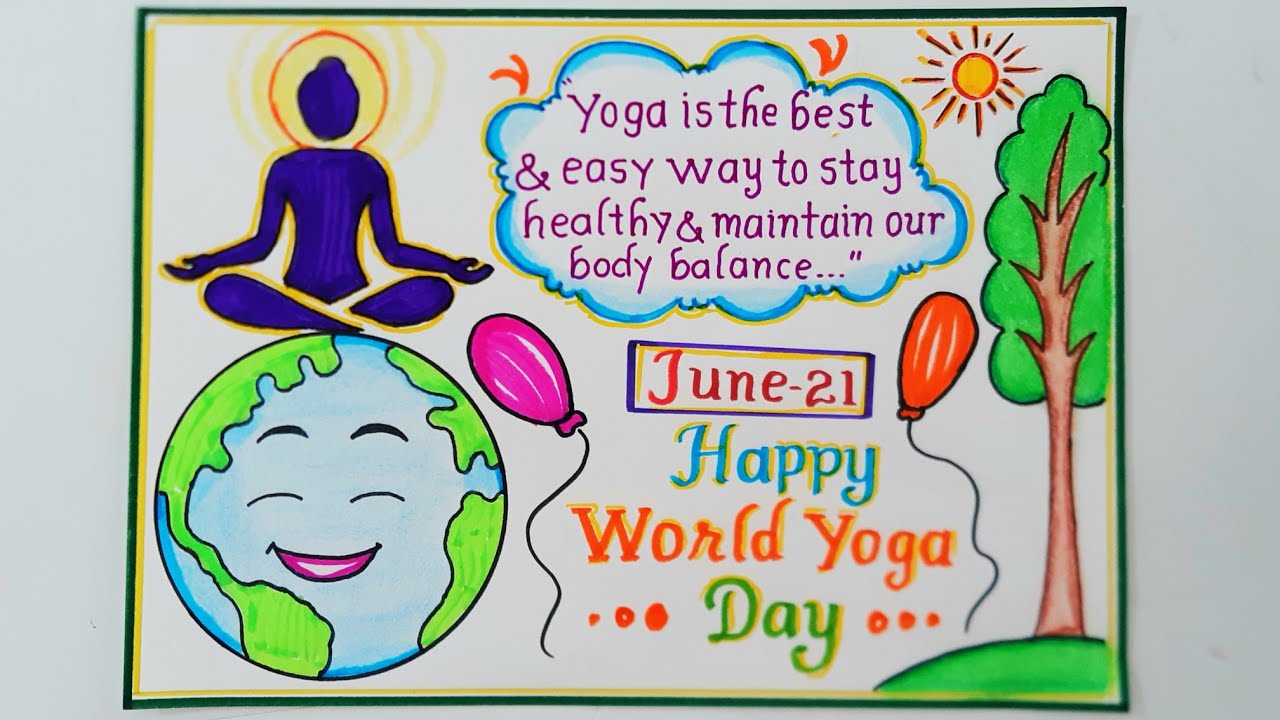 "Yoga is the best
& easy way to stay
healthy & maintain our
body balance..."
June-21
Happy
World Yoga
... Day ...